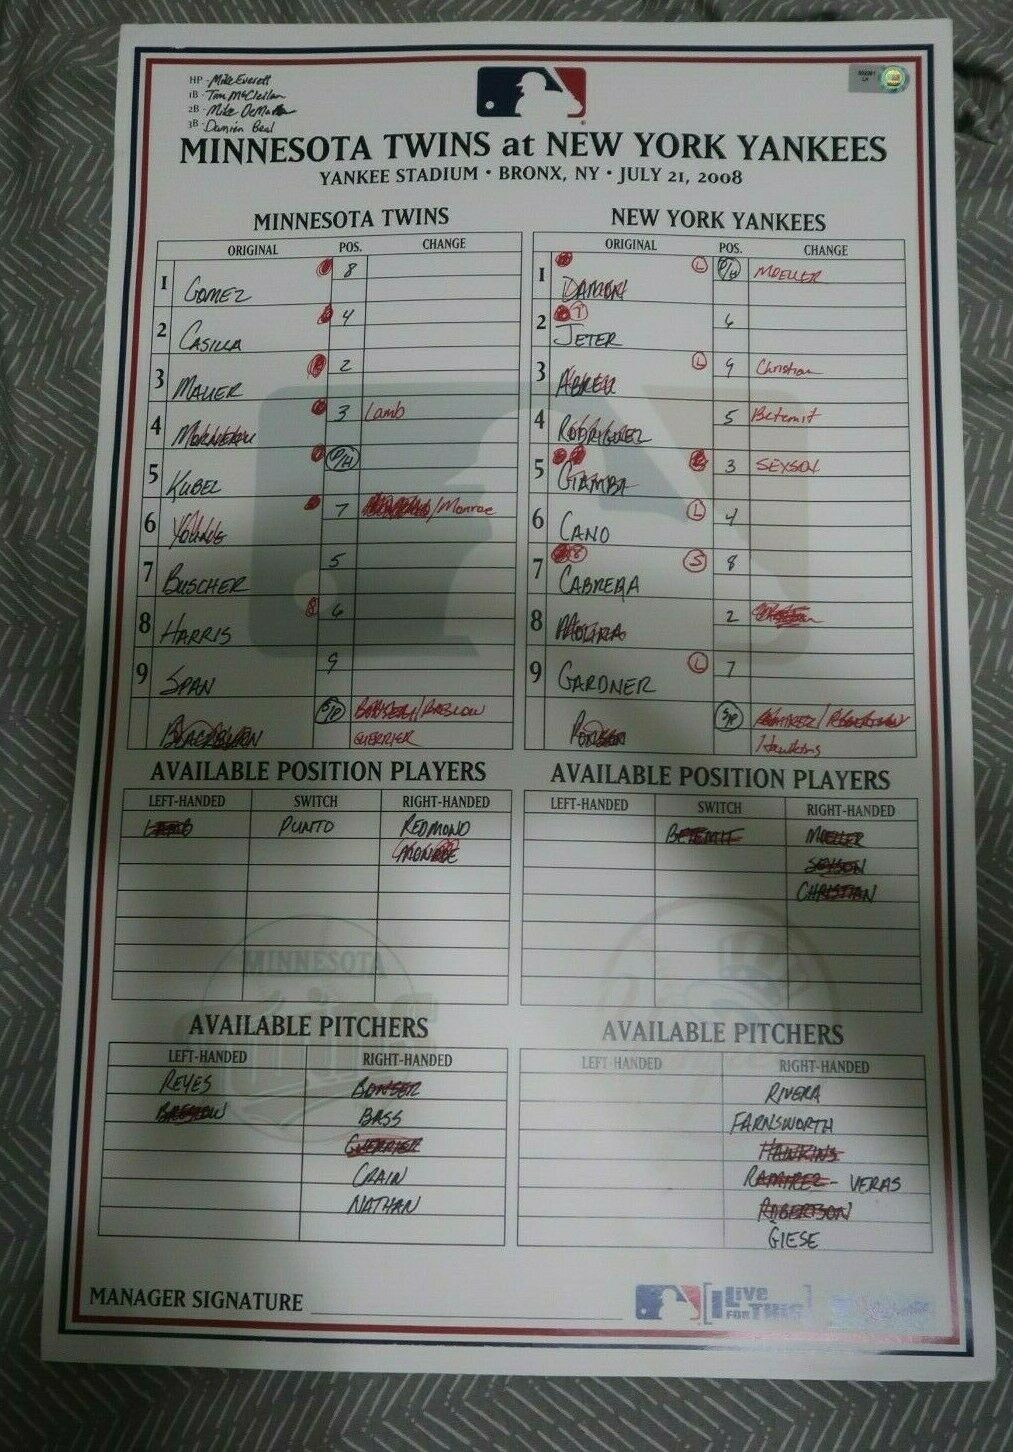 HP - Mike Everett
1B - Tim McClellan
2B - Mike DeMuth
3B - Damien Beal
MINNESOTA TWINS at NEW YORK YANKEES
YANKEE STADIUM • BRONX, NY • JULY 21, 2008
MINNESOTA TWINS
ORIGINAL POS. CHANGE
1 GOMEZ 8
2 CASILLA 4
3 MAUER 2
4 MORNEAU 3 Lamb
5 KUBEL D/H
6 YOUNG 7 /Monroe
7 BUSCHER 5
8 HARRIS 6
9 SPAN 9
BLACKBURN S/P BONSER/BRESLOW
GUERRIER
NEW YORK YANKEES
ORIGINAL POS. CHANGE
1 DAMON L D/H MOELLER
2 JETER 6
3 ABREU L 9 Christian
4 RODRIGUEZ 5 Betemit
5 GIAMBI 3 SEXSON
6 CANO L 4
7 CABRERA S 8
8 MOLINA 2
9 GARDNER L 7
PONSON S/P RAMIREZ/ROBERTSON
Hawkins
AVAILABLE POSITION PLAYERS
LEFT-HANDED SWITCH RIGHT-HANDED
LAMB PUNTO REDMOND
MONROE
AVAILABLE POSITION PLAYERS
LEFT-HANDED SWITCH RIGHT-HANDED
BETEMIT MOELLER
SEXSON
CHRISTIAN
MINNESOTA
AVAILABLE PITCHERS
LEFT-HANDED RIGHT-HANDED
REYES BONSER
BRESLOW BASS
GUERRIER
CRAIN
NATHAN
AVAILABLE PITCHERS
LEFT-HANDED RIGHT-HANDED
RIVERA
FARNSWORTH
HAWKINS
RAMIREZ - VERAS
ROBERTSON
GIESE
MANAGER SIGNATURE
I Live FOR THIS